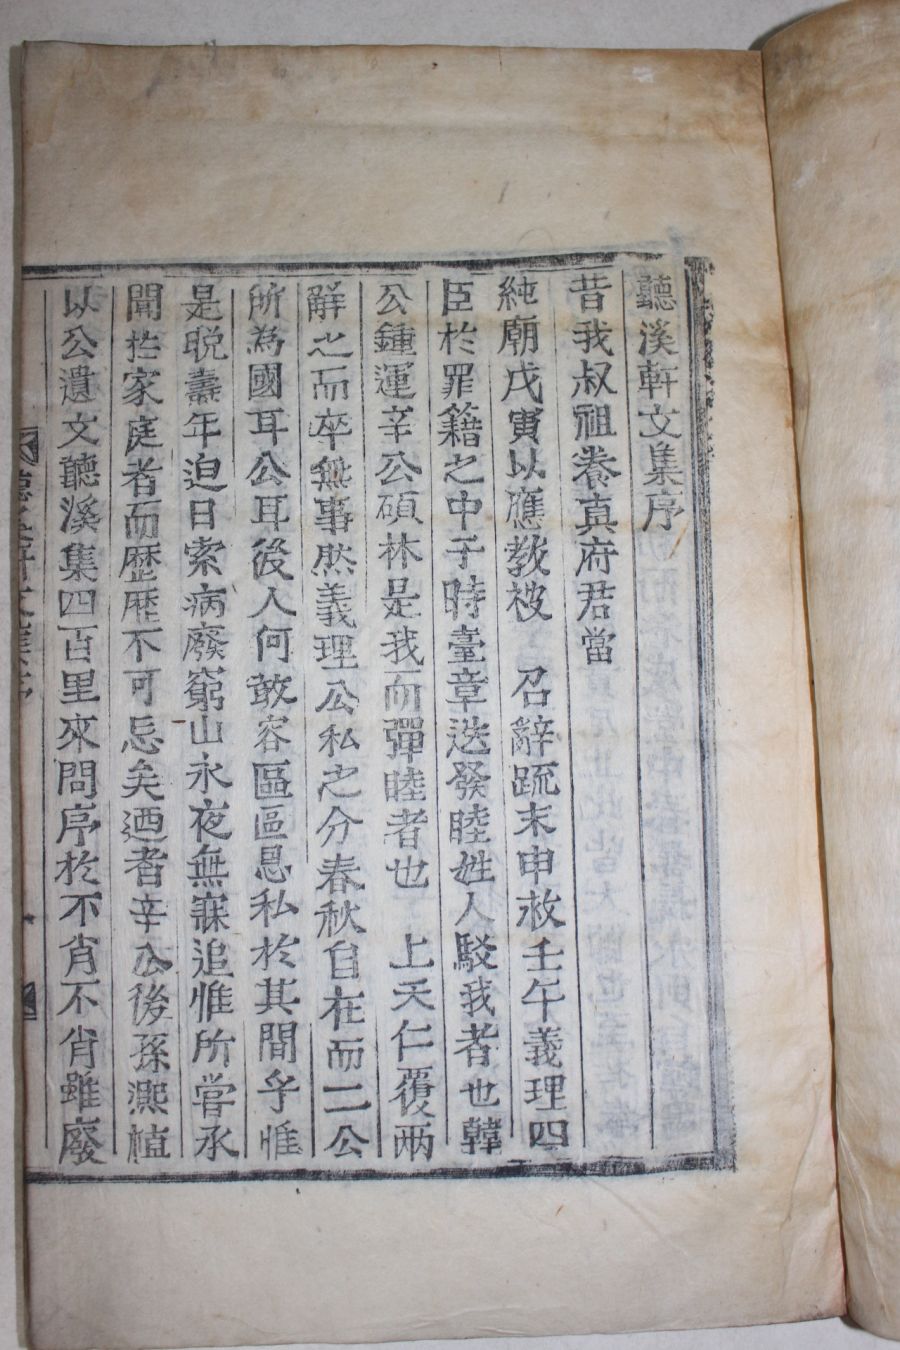 聽溪軒文集序
昔我叔祖養真府君當
純廟戊寅以應教被 召辭疏末申救壬午義理四
臣於罪籍之中于時臺章迭發睦姓人駁我者也韓
公鍾運辛公碩林是我而彈睦者也 上天仁覆兩
解之而卒無事然義理公私之分春秋自在而二公
所為國耳公耳後人何敢容區區恩私於其間乎惟
是晩壽年迫日索病廢窮山永夜無寐追惟所嘗承
聞於家庭者而歷歷不可忘矣迺者辛公後孫熙植
以公遺文聽溪集四百里來問序於不肖不肖雖廢
聽溪軒文集序